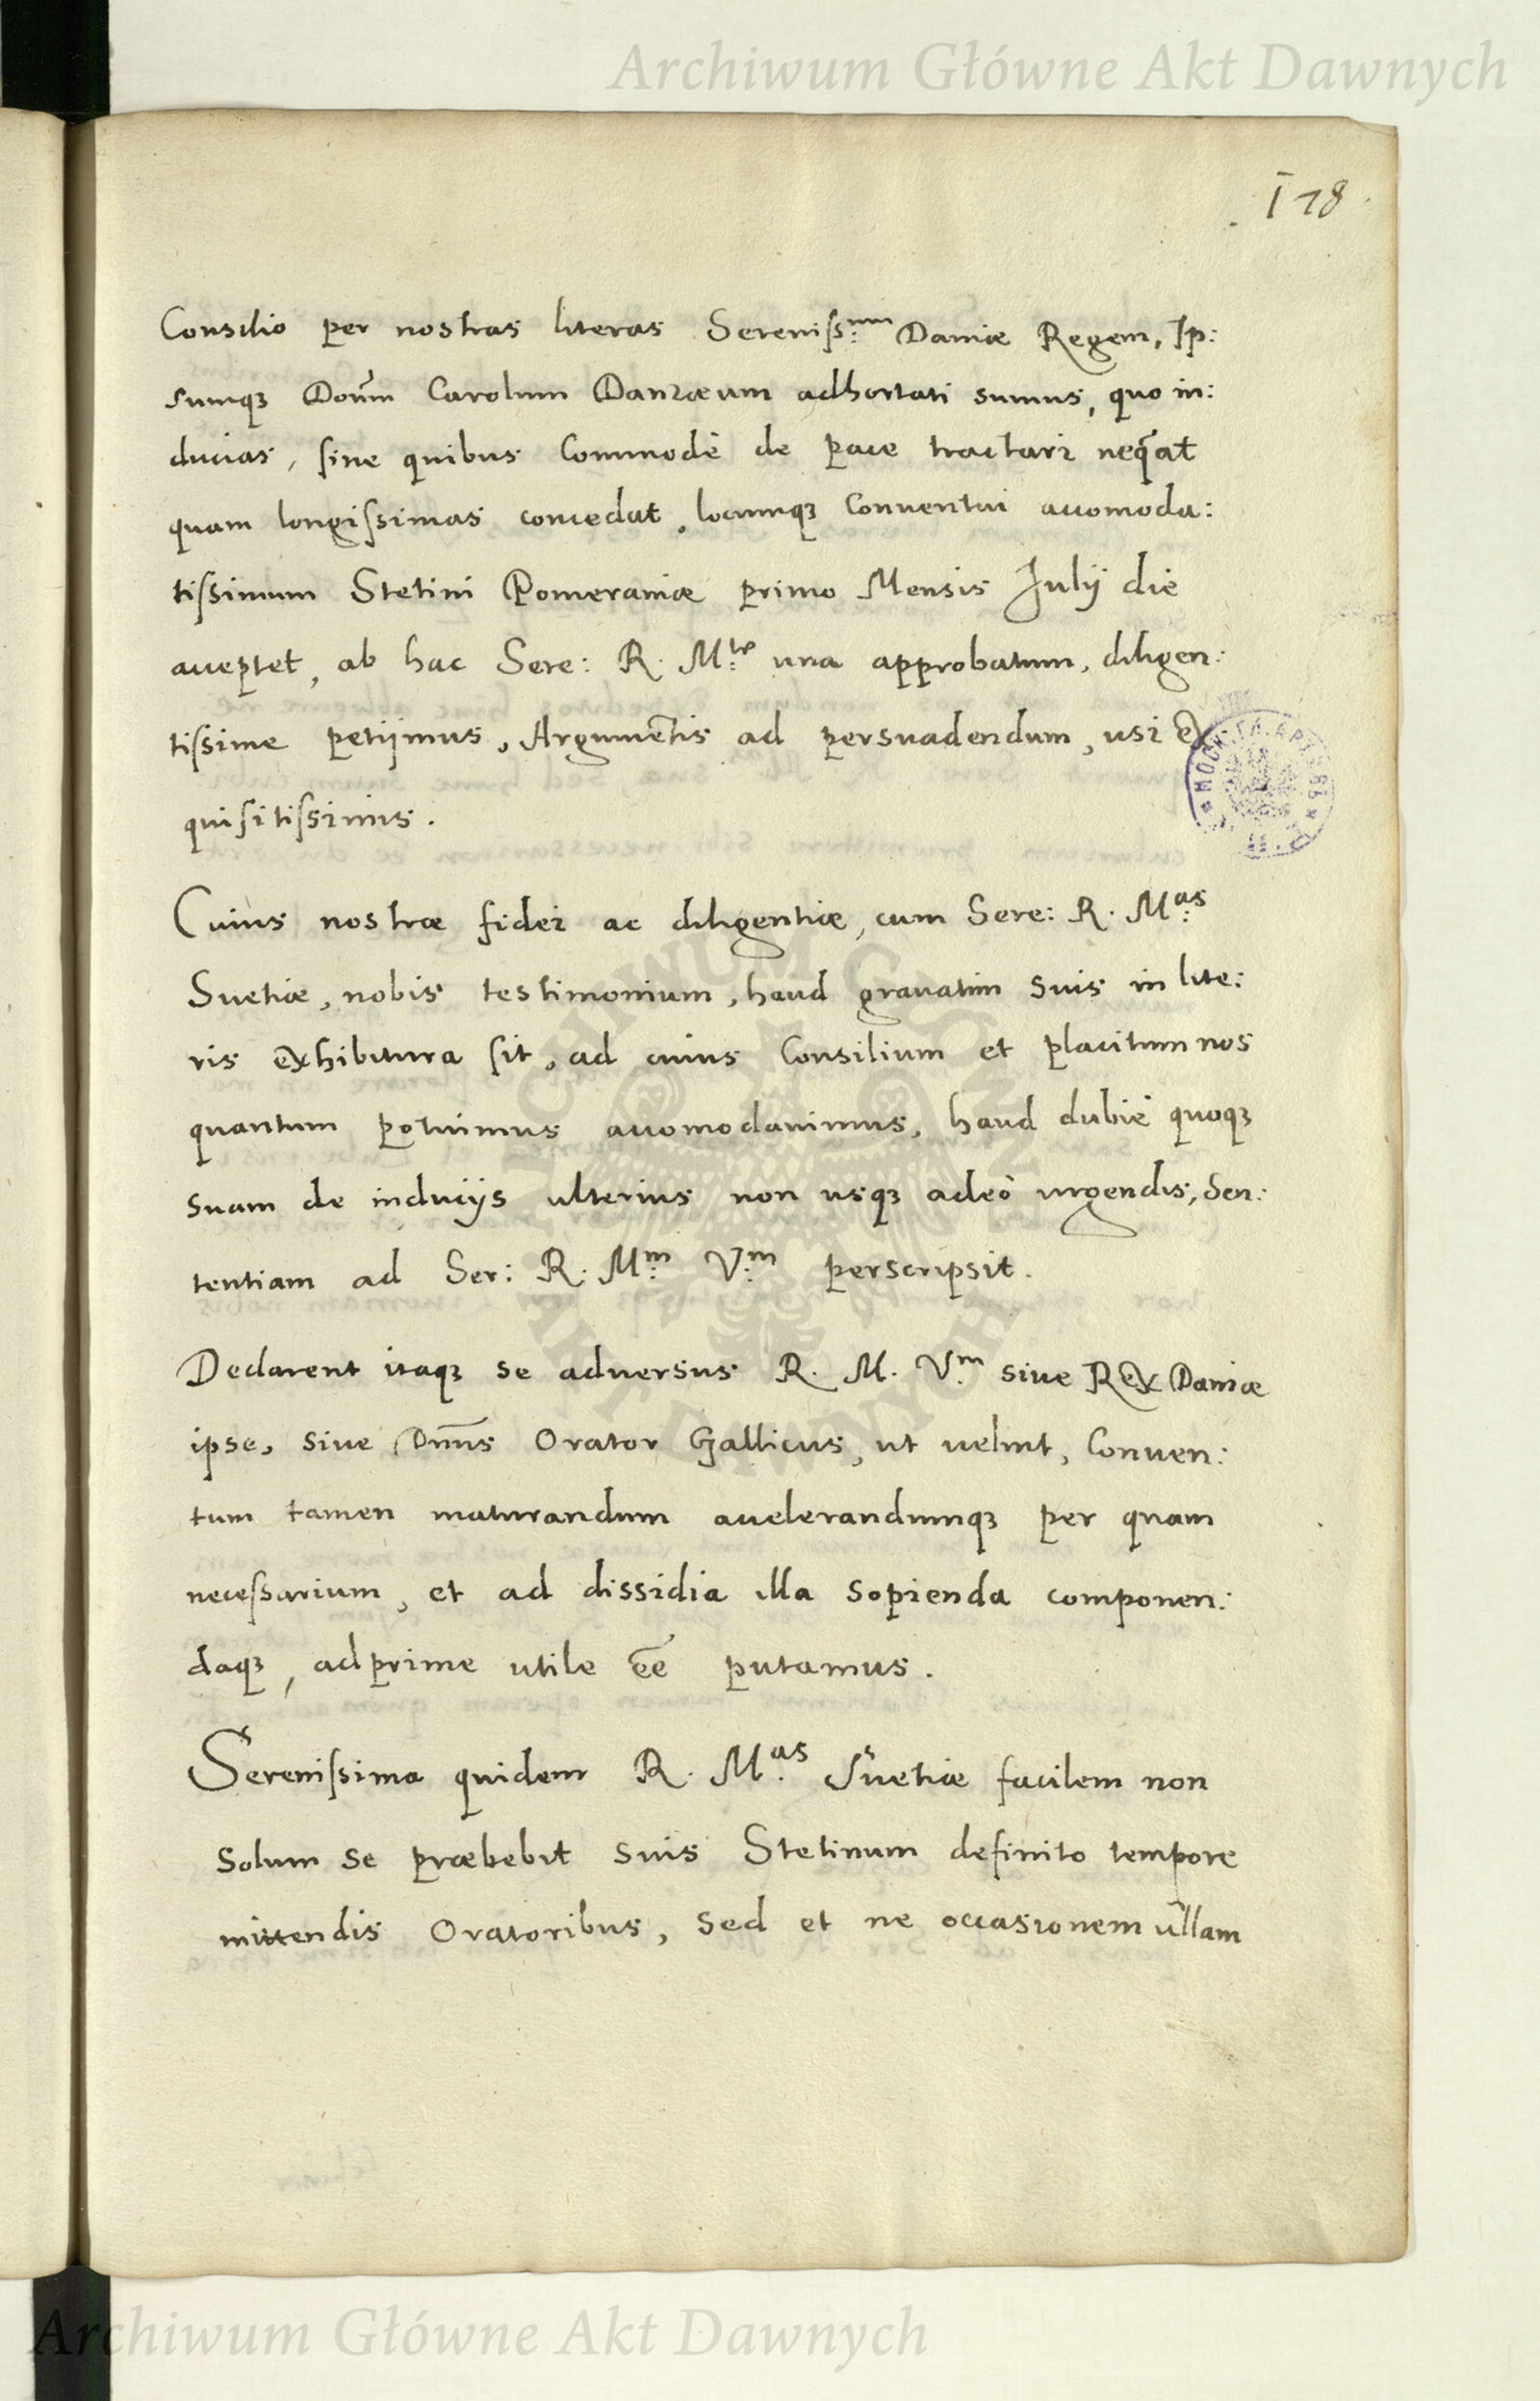 Archiwum Główne Akt Dawnych
178
Consilio per nostras literas Sereniss:mum Daniæ Regem, Ip:
sumq3 Dom̃ Carolum Danzæum adhortati sumus, quo in:
ducias, sine quibus Commodè de pace tractari neq̃at
quam longissimas concedat, locumq3 Conventui accomoda:
tissimum Stetini Pomeraniæ primo Mensis Julij die
acceptet, ab hac Sere: R. M:te una approbatum, diligen:
tissime petijmus, Argumẽtis ad persuadendum, usi ex
quisitissimis.
Cuius nostræ fidei ac diligentiæ, cum Sere: R. M:as
Suetiæ, nobis testimonium, haud gravatim suis in lite:
ris exhibitura sit, ad cuius Consilium et placitum nos
quantum potuimus accomodavimus, haud dubiè quoq3
suam de inducijs ulterius non usq3 adeò urgendis, Sen:
tentiam ad Ser: R. M:m V:m perscripsit.
Declarent itaq3 se adversus R. M. V:m sive Rex Daniæ
ipse, sive Dñus Orator Gallicus, ut velint, Conven:
tum tamen maturandum accelerandumq3 per quam
necessarium, et ad dissidia illa sopienda componen:
daq3, adprime utile ẽe putamus.
Serenissima quidem R. M:as Suetiæ facilem non
solum se præbebit suis Stetinum definito tempore
mittendis Oratoribus, sed et ne occasionem ullam
ARCHIWUM GŁÓWNE AKT DAWNYCH
Archiwum Główne Akt Dawnych